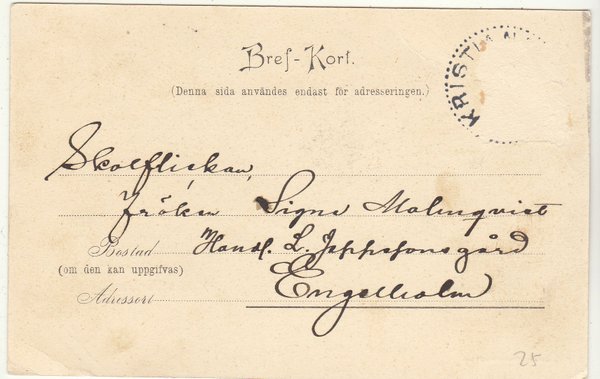 Bref-Kort.
(Denna sida användes endast för adresseringen.)
KRISTIAN
Skolflickan,
Fröken Signe Malmqvist
Bostad Handl. L. Jeppssonsgård
(om den kan uppgifvas)
Engelholm
Adressort
25